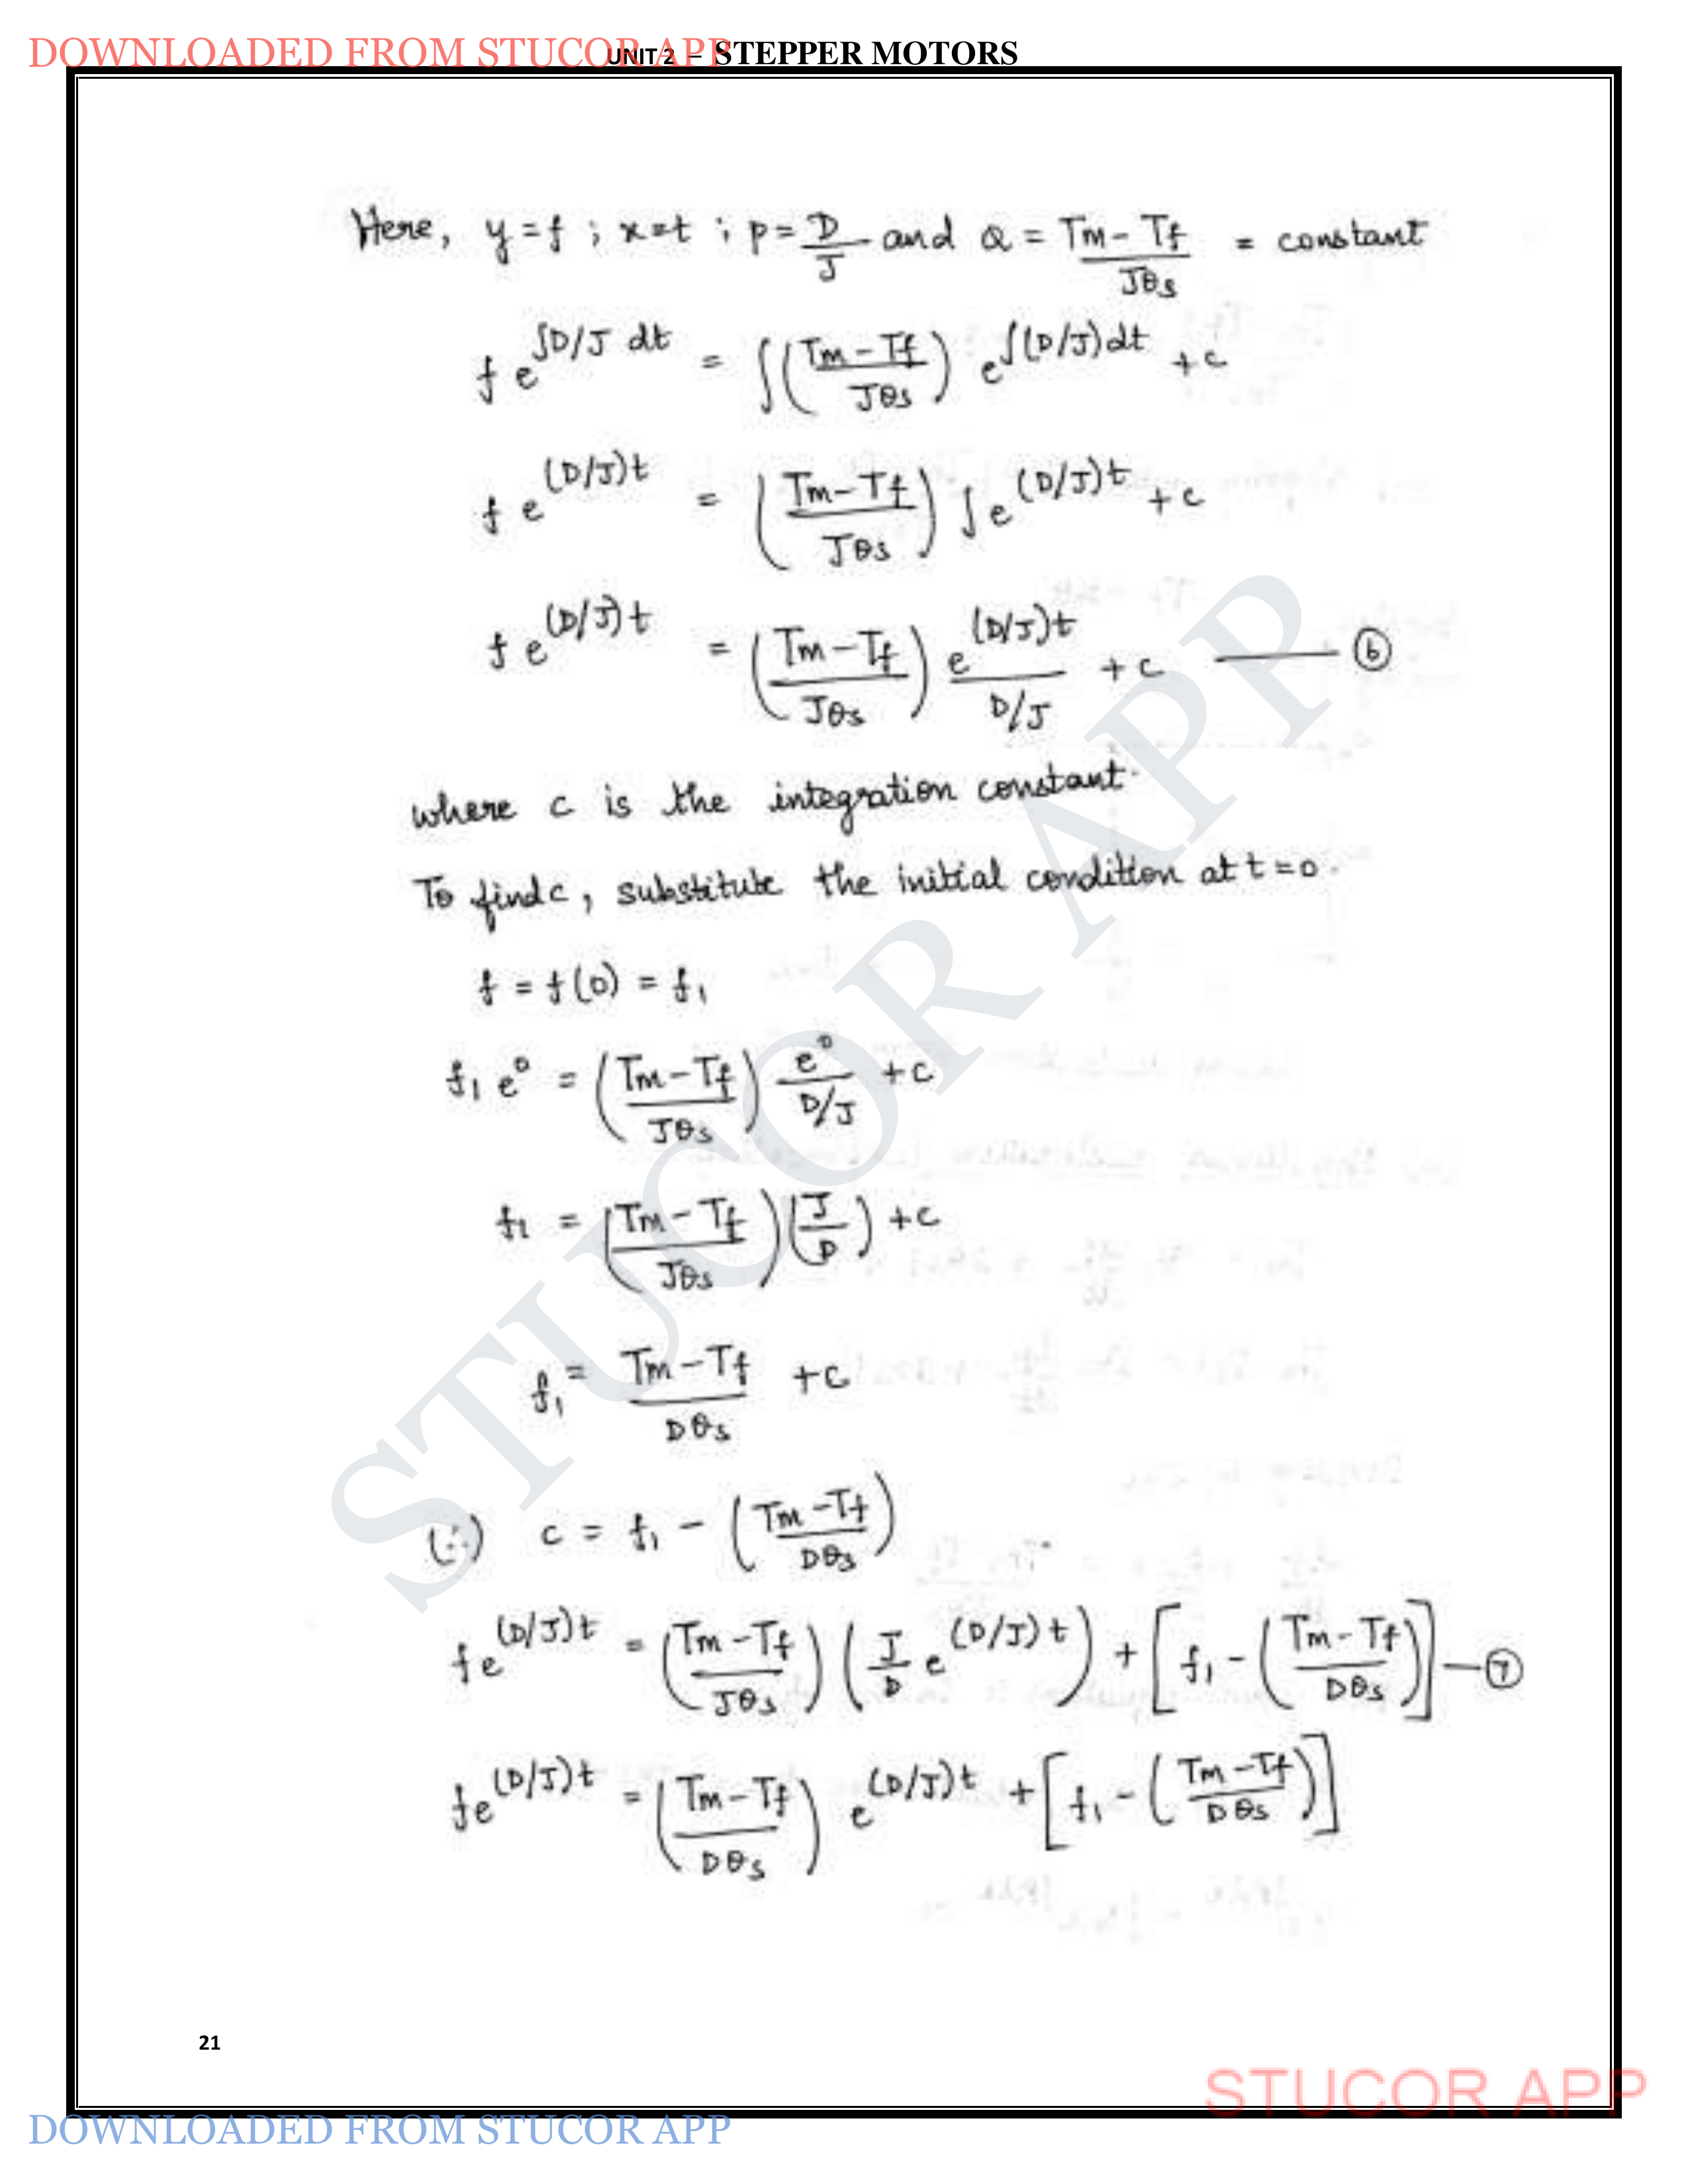 DOWNLOADED FROM STUCOR APP
UNIT 2 – STEPPER MOTORS
Here, y = f ; x = t ; p = D/J and Q = (Tm - Tf)/(Jθs) = constant
f e^(∫D/J dt) = ∫((Tm - Tf)/(Jθs)) e^(∫(D/J)dt) + c
f e^((D/J)t) = ((Tm - Tf)/(Jθs)) ∫e^((D/J)t) + c
f e^((D/J)t) = ((Tm - Tf)/(Jθs)) e^((D/J)t)/(D/J) + c —— ⑥
where c is the integration constant.
To find c, substitute the initial condition at t = 0.
f = f(0) = f1
f1 e^0 = ((Tm - Tf)/(Jθs)) e^0/(D/J) + c
f1 = ((Tm - Tf)/(Jθs)) (J/D) + c
f1 = (Tm - Tf)/(Dθs) + c
(∴) c = f1 - ((Tm - Tf)/(Dθs))
f e^((D/J)t) = ((Tm - Tf)/(Jθs)) (J/D e^((D/J)t)) + [f1 - ((Tm - Tf)/(Dθs))] — ⑦
f e^((D/J)t) = ((Tm - Tf)/(Dθs)) e^((D/J)t) + [f1 - ((Tm - Tf)/(Dθs))]
STUCOR APP
21
STUCOR APP
DOWNLOADED FROM STUCOR APP